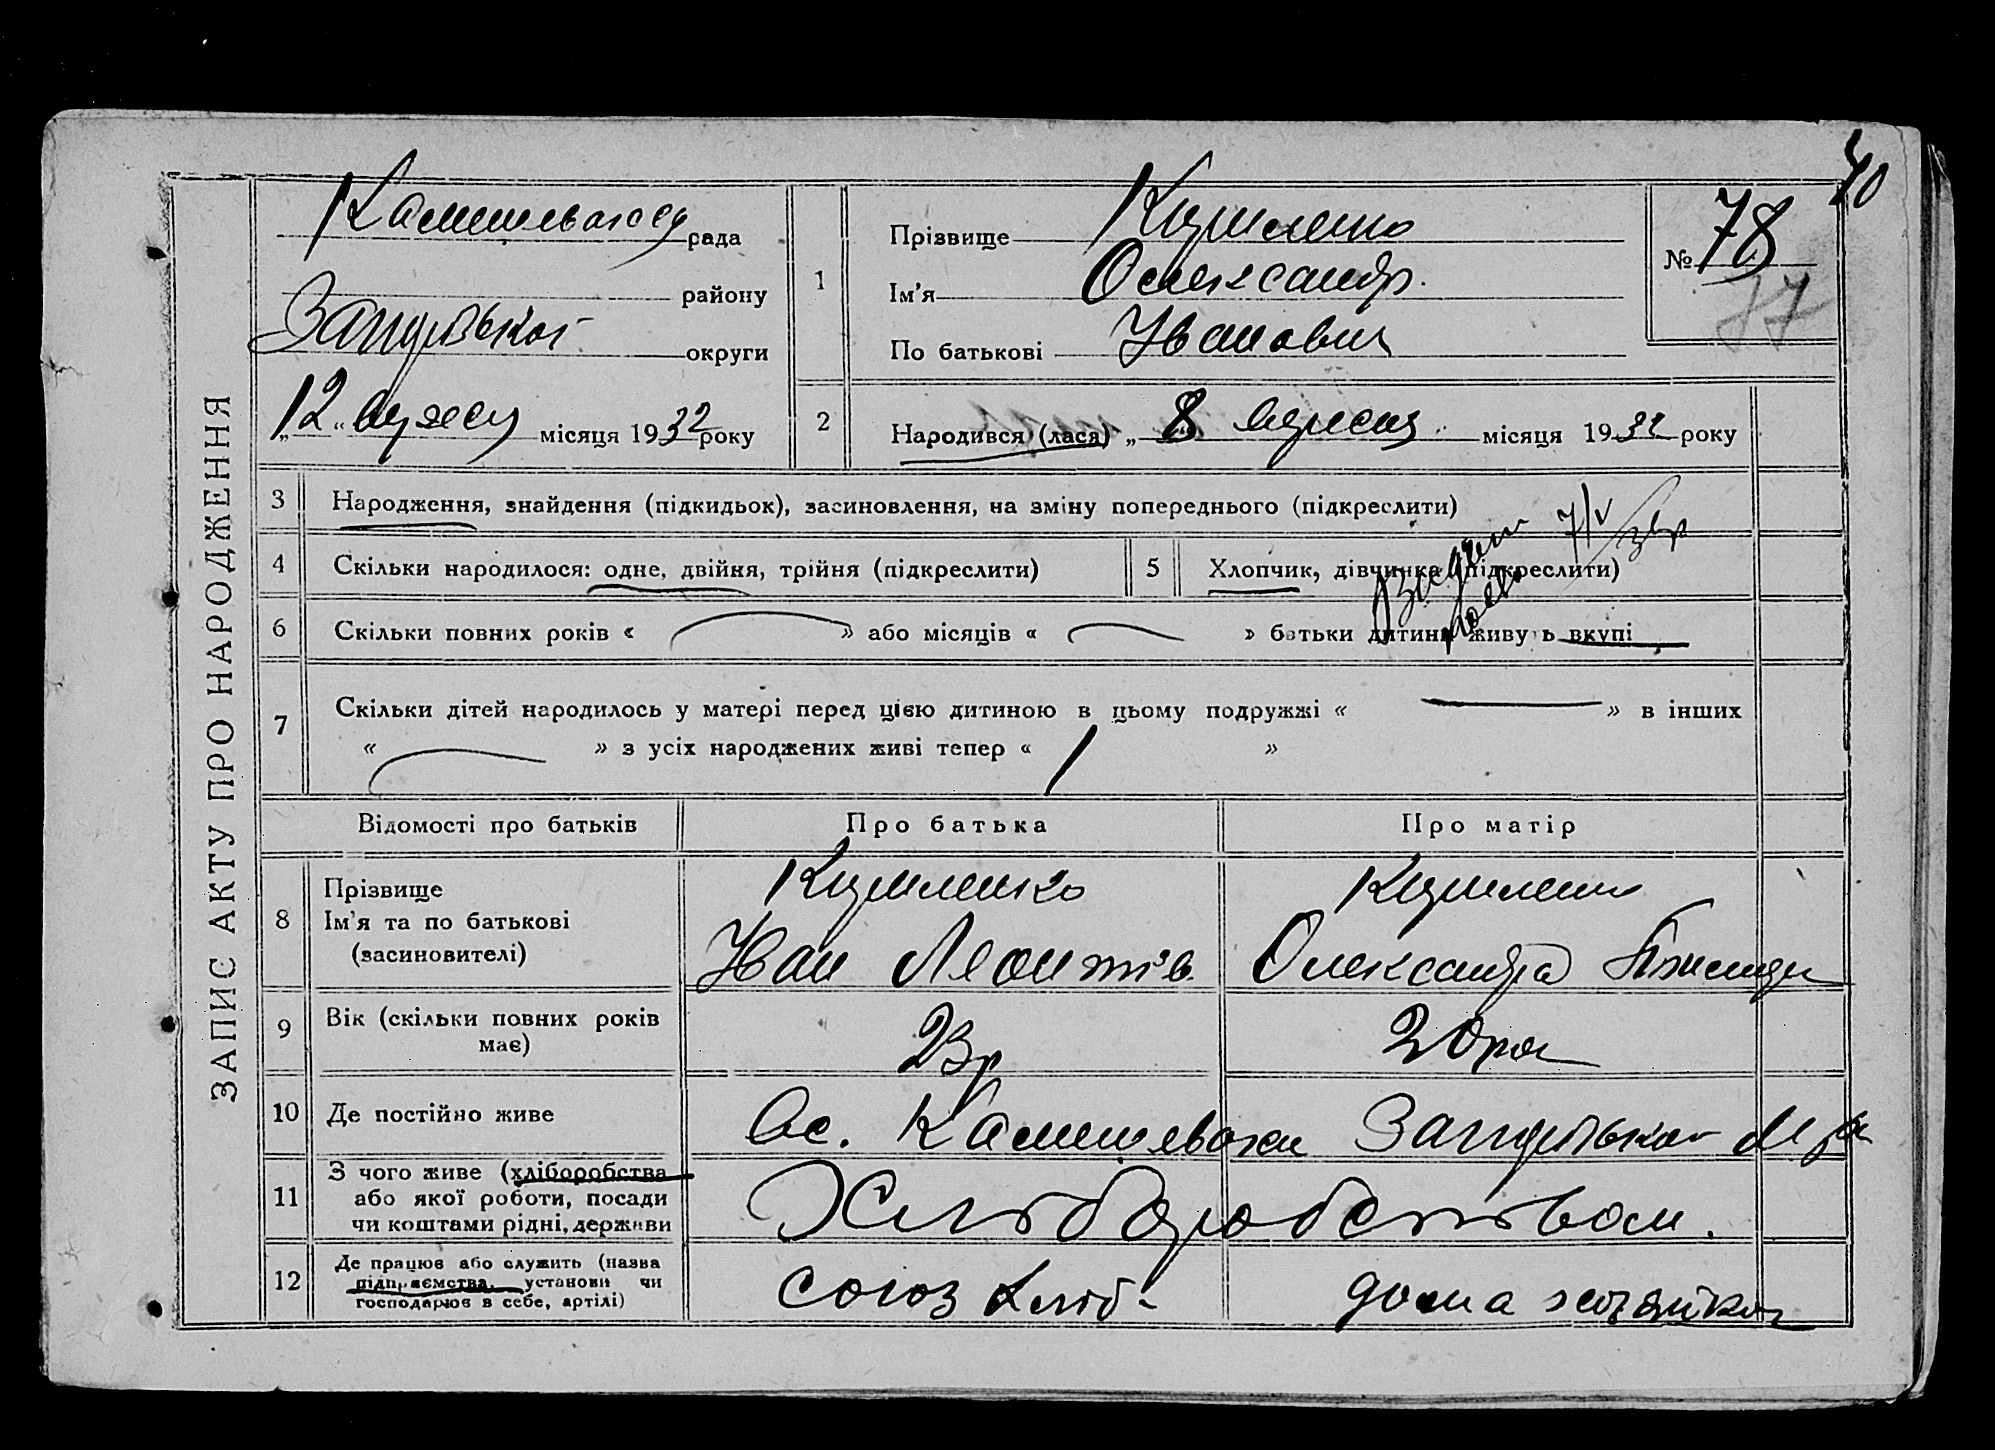 40
ЗАПИС АКТУ ПРО НАРОДЖЕННЯ
рада
району
округи
„12“ місяця 1932 року
1
Прізвище
Ім'я Олександр
По батькові Иванович
№ 78
77
2
Народився (лася) „ 8 вересня місяця 1932 року
3 Народження, знайдення (підкидьок), засиновлення, на зміну попереднього (підкреслити)
4 Скільки народилося: одне, двійня, трійня (підкреслити)
5 Хлопчик, дівчинка (підкреслити)
7/V
6 Скільки повних років « » або місяців « » батьки дитини живуть вкупі
7 Скільки дітей народилось у матері перед цією дитиною в цьому подружжі « — » в інших
« » з усіх народжених живі тепер « 1 »
Відомості про батьків
Про батька
Про матір
8
Прізвище
Ім'я та по батькові
(засиновителі)
Иван Леонтів
Олександра
9
Вік (скільки повних років
має)
23 р
20 рок
10 Де постійно живе
Ос. Камишеваха
11
З чого живе (хліборобства
або якої роботи, посади
чи коштами рідні, держави
Хліборобством.
12
Де працює або служить (назва
підприємства, установи чи
господарює в себе, артілі)
союз хліб-
дома хозяйка